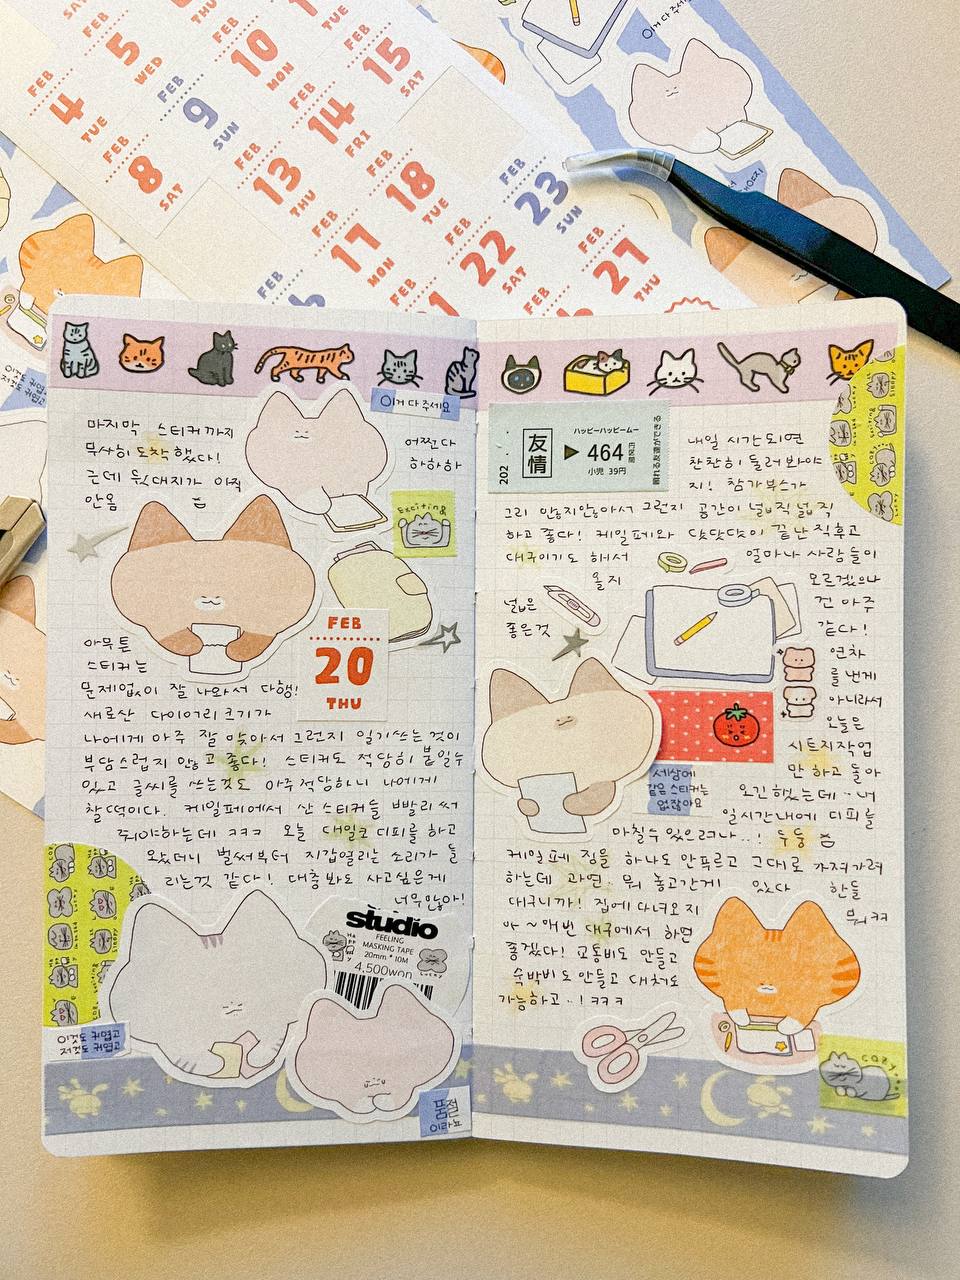 FEB 4 TUE
FEB 5 WED
FEB 8 SAT
FEB 9 SUN
FEB 10 MON
FEB 13 THU
FEB 14 FRI
FEB 15 SAT
FEB 17 MON
FEB 18 TUE
FEB 22 SAT
FEB 23 SUN
FEB 27 THU
이거 다 주세요
마지막 스티커까지
무사히 도착했다!
근데 뒷대지가 아직
안옴
어쩐다
하하하
Exciting
FEB
20
THU
아무튼
스티커는
문제없이 잘 나와서 다행!
새로산 다이어리 크기가
나에게 아주 잘 맞아서 그런지 일기쓰는 것이
부담스럽지 않고 좋다! 스티커도 적당히 붙일수
있고 글씨를 쓰는것도 아주적당하니 나에게
찰떡이다. 케일페에서 산 스티커들 빨리 써
줘야하는데 ㅋㅋㅋ 오늘 대일코 디피를 하고
왔더니 벌써부터 지갑열리는 소리가 들
리는것 같다! 대충봐도 사고싶은게
너무많아!
studio
FEELING
MASKING TAPE
20mm * 10M
4,500won
이것도 귀엽고
저것도 귀엽고
품절
이라뇨
202
友情
ハッピーハッピームー
▶ 464 円区間
小児 39円
내일 시간되면
찬찬히 둘러봐야
지! 참가부스가
그리 많지않아서 그런지 공간이 널찍널찍
하고 좋다! 케일페와 다닷다닷이 끝난직후고
대구이기도 해서 얼마나 사람들이
올지 모르겠으나
넓은 건 아주
좋은것 같다!
연차
를 낸게
아니라서
오늘은
시트지작업
만 하고 돌아
오긴했는데··너
일시간내에 디피를
마칠수있으려나..! 두둥
세상에
같은 스티커는
없잖아요
케일페 짐을 하나도 안푸르고 그대로 가져가려
하는데 과연. 뭐 놓고간게 있다 한들
대구니까! 집에 다녀오지 뭐ㅋㅋ
아~매번 대구에서 하면
좋겠다! 교통비도 안들고
숙박비도 안들고 대처도
가능하고··! ㅋㅋㅋ
COZY